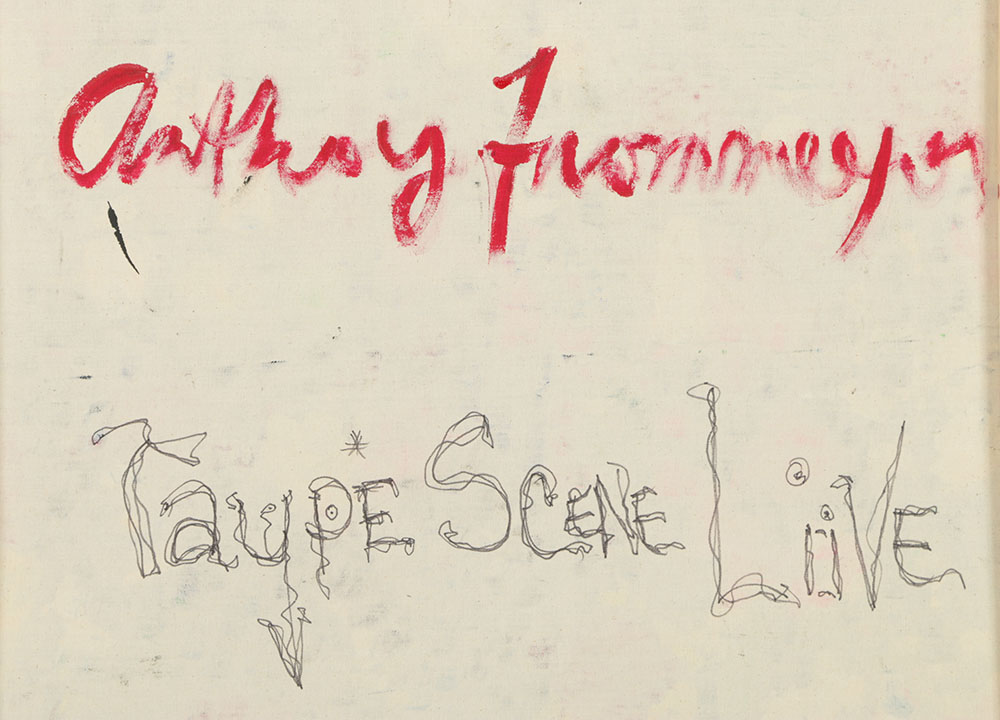 Anthony Frommeyer
TaupE SCENE LiVE